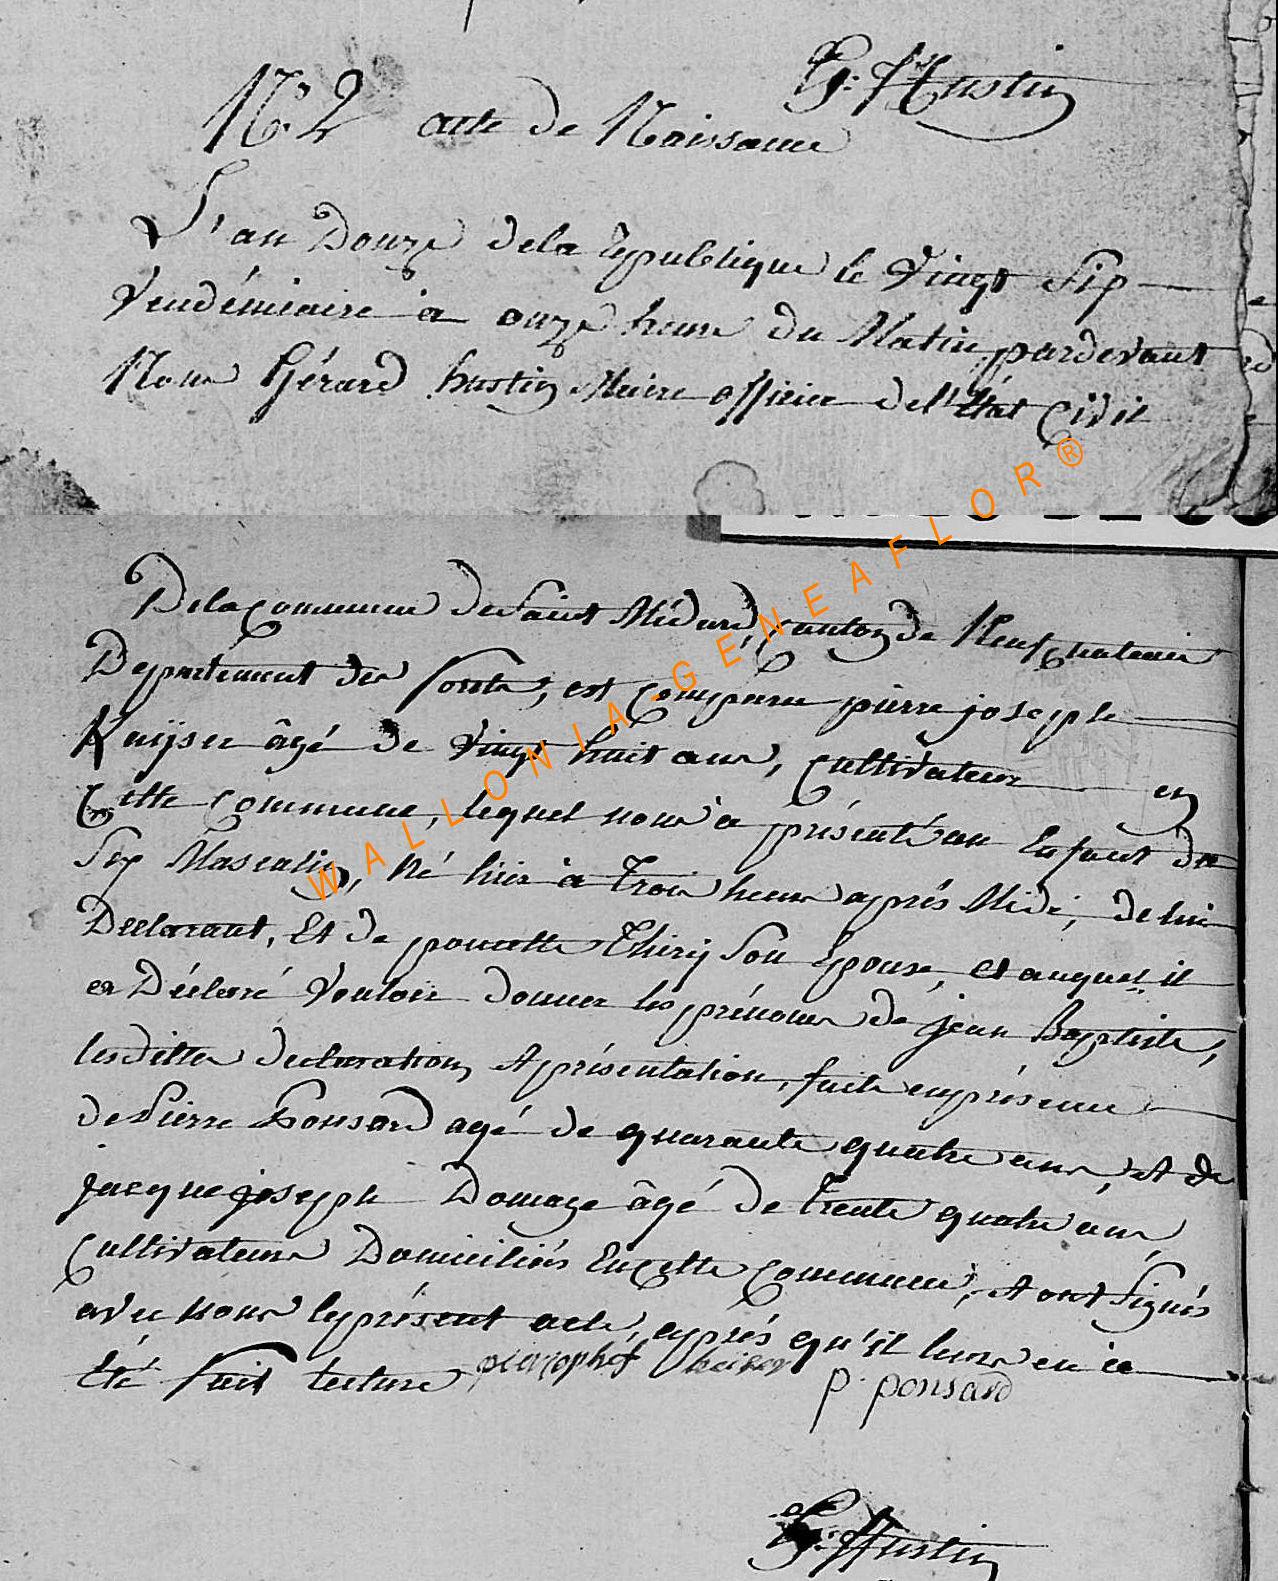 G: Hustin
N.° 2 acte de Naissance
L'an Douze dela Republique le Vingt Six
Vendémiaire à onze heure du Matin pardevant
Nous Gérard hustin Maire officier del'état Civil
Dela commune de Saint Médard, canton de Neufchateau
Departement des forets, est comparu pierre joseph
Kaijser âgé de Vingt huit ans, cultivateur en
Cette commune, lequel nous a présenté un Enfant du
Sex Masculin, Né hier à Trois heures après Midi, de lui
Déclarant, Et de poncette Thiry Son Epouse, et auquel il
a Déclaré Vouloir donner les prénoms de jean Baptiste,
lesdittes declaration, et présentation, faite en présence
de Pierre Ponsard agé de quarante quatre ans, et de
jacque joseph Domage âgé de trente quatre ans
Cultivateurs Domiciliés En cette commune, et ont Signés
avec nous le présent acte, après qu'il leurs en a
Eté fait lecture
p. ponsard
G: Hustin
WALLONIA-GENEAFLOR®